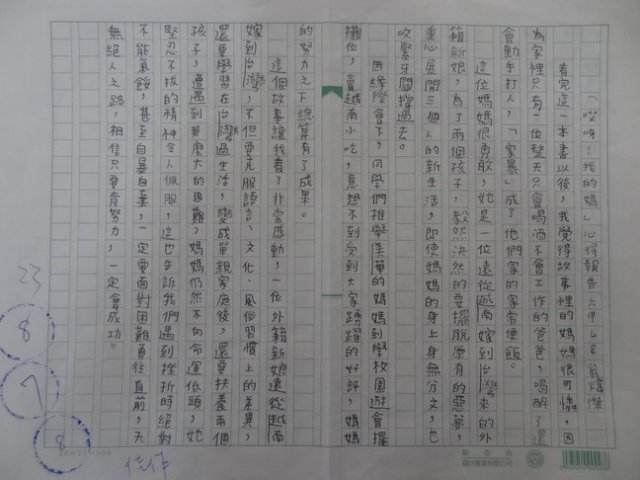 「哎呀!我的媽」心得報告 六年
看完這一本書以後,我覺得故事裡的媽媽很可憐,因
為家裡只有一位整天只會喝酒不會工作的爸爸,喝醉了還
會動手打人,「家暴」成了他們家的家常便飯。
這位媽媽很勇敢,她是一位遠從越南嫁到台灣來的外
籍新娘,為了兩個孩子,毅然決然的要擺脫原有的惡夢,
重心展開三個人的新生活,即使媽媽的身上身無分文,也
咬緊牙關撐過去。
因緣際會下,同學們推舉美華的媽媽到學校園遊會擺
攤位,賣越南小吃,意想不到受到大家踴躍的好評,媽媽
的努力之下總算有了成果。
這個故事讓我看了非常感動,一位外籍新娘遠從越南
嫁到台灣,不但要克服語言、文化、風俗習慣上的差異,
還要學習在台灣過生活,變成單親家庭後,還要扶養兩個
孩子,遭遇到多麼大的困難,媽媽仍然不向命運低頭,她
堅忍不拔的精神令人佩服,這也告訴我們遇到挫折時絕對
不能氣餒,甚至自暴自棄,一定要面對困難勇往直前,天
無絕人之路,相信只要肯努力,一定會成功。
23
8
7
8
佳作
20×25=500